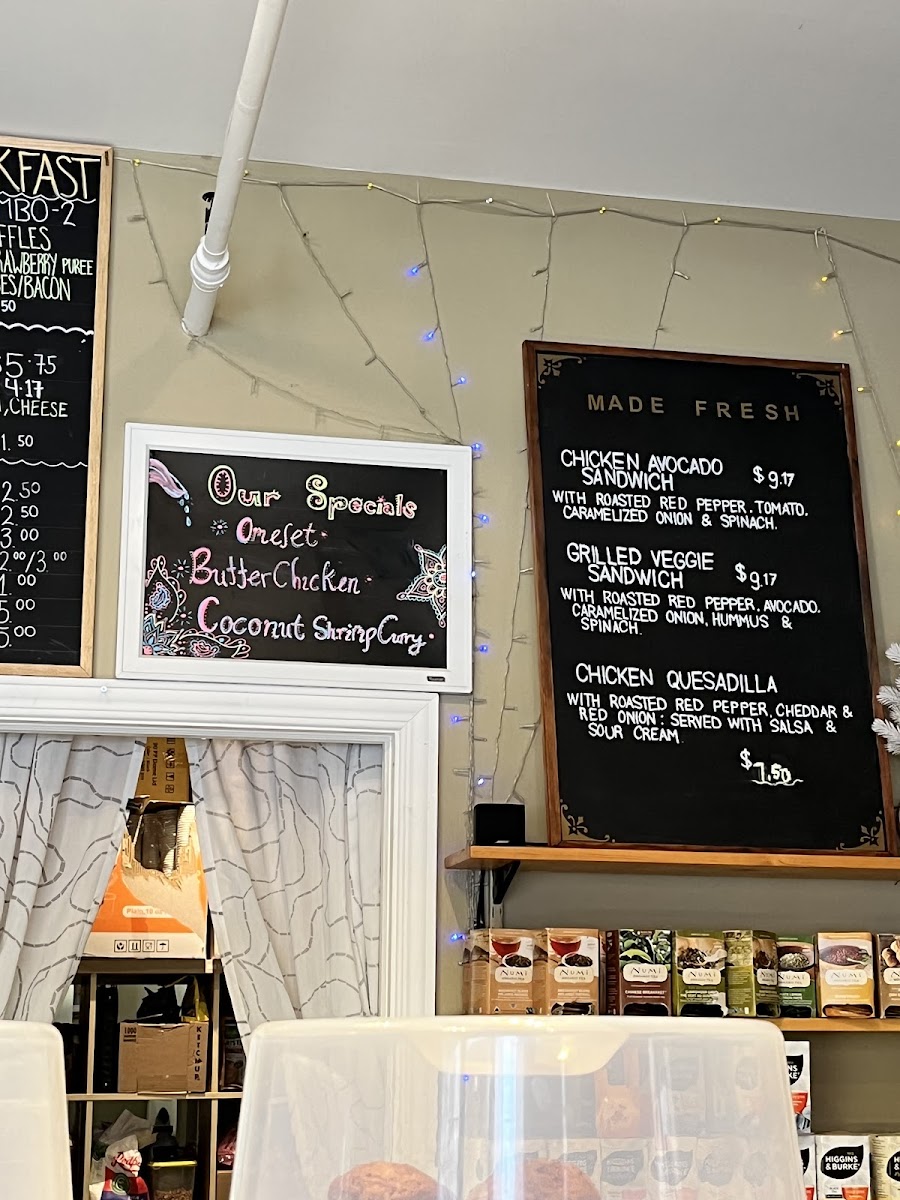 KFAST
MBO-2
FFLES
RAWBERRY PUREE
ES/BACON
50
$5.75
4.17
, CHEESE
1.50
2.50
2.50
3.00
2.00/3.00
1.00
5.00
5.00
Our Specials
Omelet.
Butter Chicken.
Coconut Shrimp Curry.
MADE FRESH
CHICKEN AVOCADO
SANDWICH
$9.17
WITH ROASTED RED PEPPER. TOMATO.
CARAMELIZED ONION & SPINACH.
GRILLED VEGGIE
SANDWICH
$9.17
WITH ROASTED RED PEPPER. AVOCADO.
CARAMELIZED ONION, HUMMUS &
SPINACH.
CHICKEN QUESADILLA
WITH ROASTED RED PEPPER, CHEDDAR &
RED ONION: SERVED WITH SALSA &
SOUR CREAM.
$7.50
NUMI
NUMI
NUMI
NUMI
NUMI
NUMI
NUMI
CHINESE BREAKFAST
1000
KETCHUP
HIGGINS
& BURKE